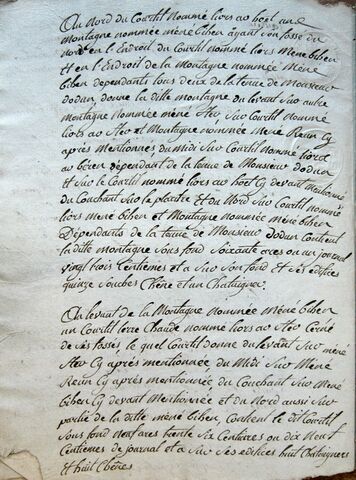 Au Nord du Courtil nommé liors ao hoel une
montagne nommée méné bihen ayant son fossé du
nord en L'Endroit du Courtil nommé liors Méné bihen
Et en L'Endroit de la Montagne nommée Méné
bihen dependants tous deux de la tenue de Monsieur
dodun, donne la ditte montagne du levant sur autre
montagne nommée méné ster, Sur Courtil nommé
liors ao ster et Montagne nommée Mené Reun Cy
après mentionnés du Midi sur Courtil nommé liors
ao béren dépendant de la tenue de Monsieur dodun
Et sur le Courtil nommé liors ao hoel Cy devant mentionné
du Couchant sur le placitre et du Nord sur Courtil nommé
liors mené bihen et Montagne nommée méné bihen
Dépendants de la tenue de Monsieur dodun Contient
la ditte montagne sous fond Soixante ares ou un journal
vingt trois Centiemes et a sur son fond et ses édifices
quinze souches Chêne et un Chataigner
Au levant de la Montagne nommée méné bihen
un Courtil terre Chaude nommé liors ao Ster Cerné
de ses fossés le quel Courtil donne du levant sur méné
Ster Cy après mentionnée du Midi sur Méné
Reun Cy après mentionnée du Couchant sur Méné
bihen Cy devant Mentionnée et du Nord aussi sur
partie de la ditte méné bihen, Contient le dit Courtil
sous fond neuf ares trente Six Centiares ou dix Neuf
Centiemes de journal et a sur ses édifices huit Chataigners
Et huit Chênes